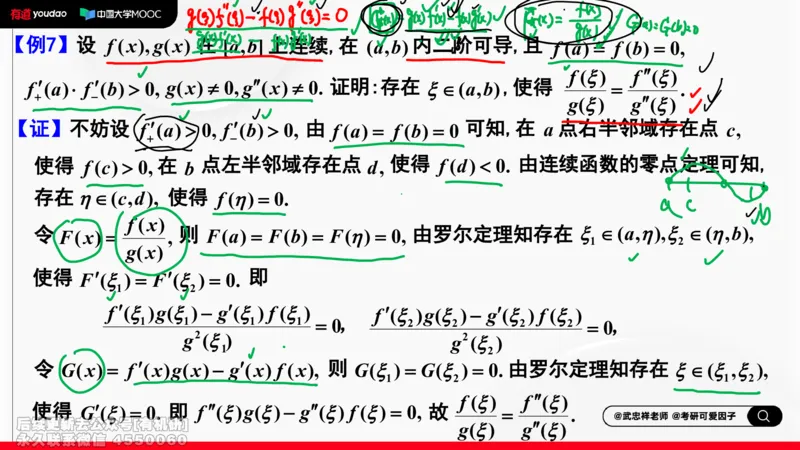 有道 youdao 中国大学MOOC
g(ξ)f''(ξ) - f(ξ)g''(ξ) = 0
G(a)=G(b)=0
【例7】设 f(x),g(x) 在 [a,b] 上连续,在 (a,b) 内二阶可导,且 f(a) = f(b) = 0,
f'₊(a)·f'₋(b) > 0, g(x) ≠ 0, g''(x) ≠ 0. 证明:存在 ξ ∈ (a,b), 使得 f(ξ)/g(ξ) = f''(ξ)/g''(ξ).
【证】不妨设 f'₊(a) > 0, f'₋(b) > 0, 由 f(a) = f(b) = 0 可知,在 a 点右半邻域存在点 c,
使得 f(c) > 0, 在 b 点左半邻域存在点 d, 使得 f(d) < 0. 由连续函数的零点定理可知,
存在 η ∈ (c,d), 使得 f(η) = 0.
a c b
令 F(x) = f(x)/g(x), 则 F(a) = F(b) = F(η) = 0, 由罗尔定理知存在 ξ₁ ∈ (a,η), ξ₂ ∈ (η,b),
使得 F'(ξ₁) = F'(ξ₂) = 0. 即
(f'(ξ₁)g(ξ₁) - g'(ξ₁)f(ξ₁))/g²(ξ₁) = 0, (f'(ξ₂)g(ξ₂) - g'(ξ₂)f(ξ₂))/g²(ξ₂) = 0,
令 G(x) = f'(x)g(x) - g'(x)f(x), 则 G(ξ₁) = G(ξ₂) = 0. 由罗尔定理知存在 ξ ∈ (ξ₁,ξ₂),
使得 G'(ξ) = 0. 即 f''(ξ)g(ξ) - g''(ξ)f(ξ) = 0, 故 f(ξ)/g(ξ) = f''(ξ)/g''(ξ).
@武忠祥老师 @考研可爱因子
后续更新去公众号[有机钟]
永久联系微信 4550060